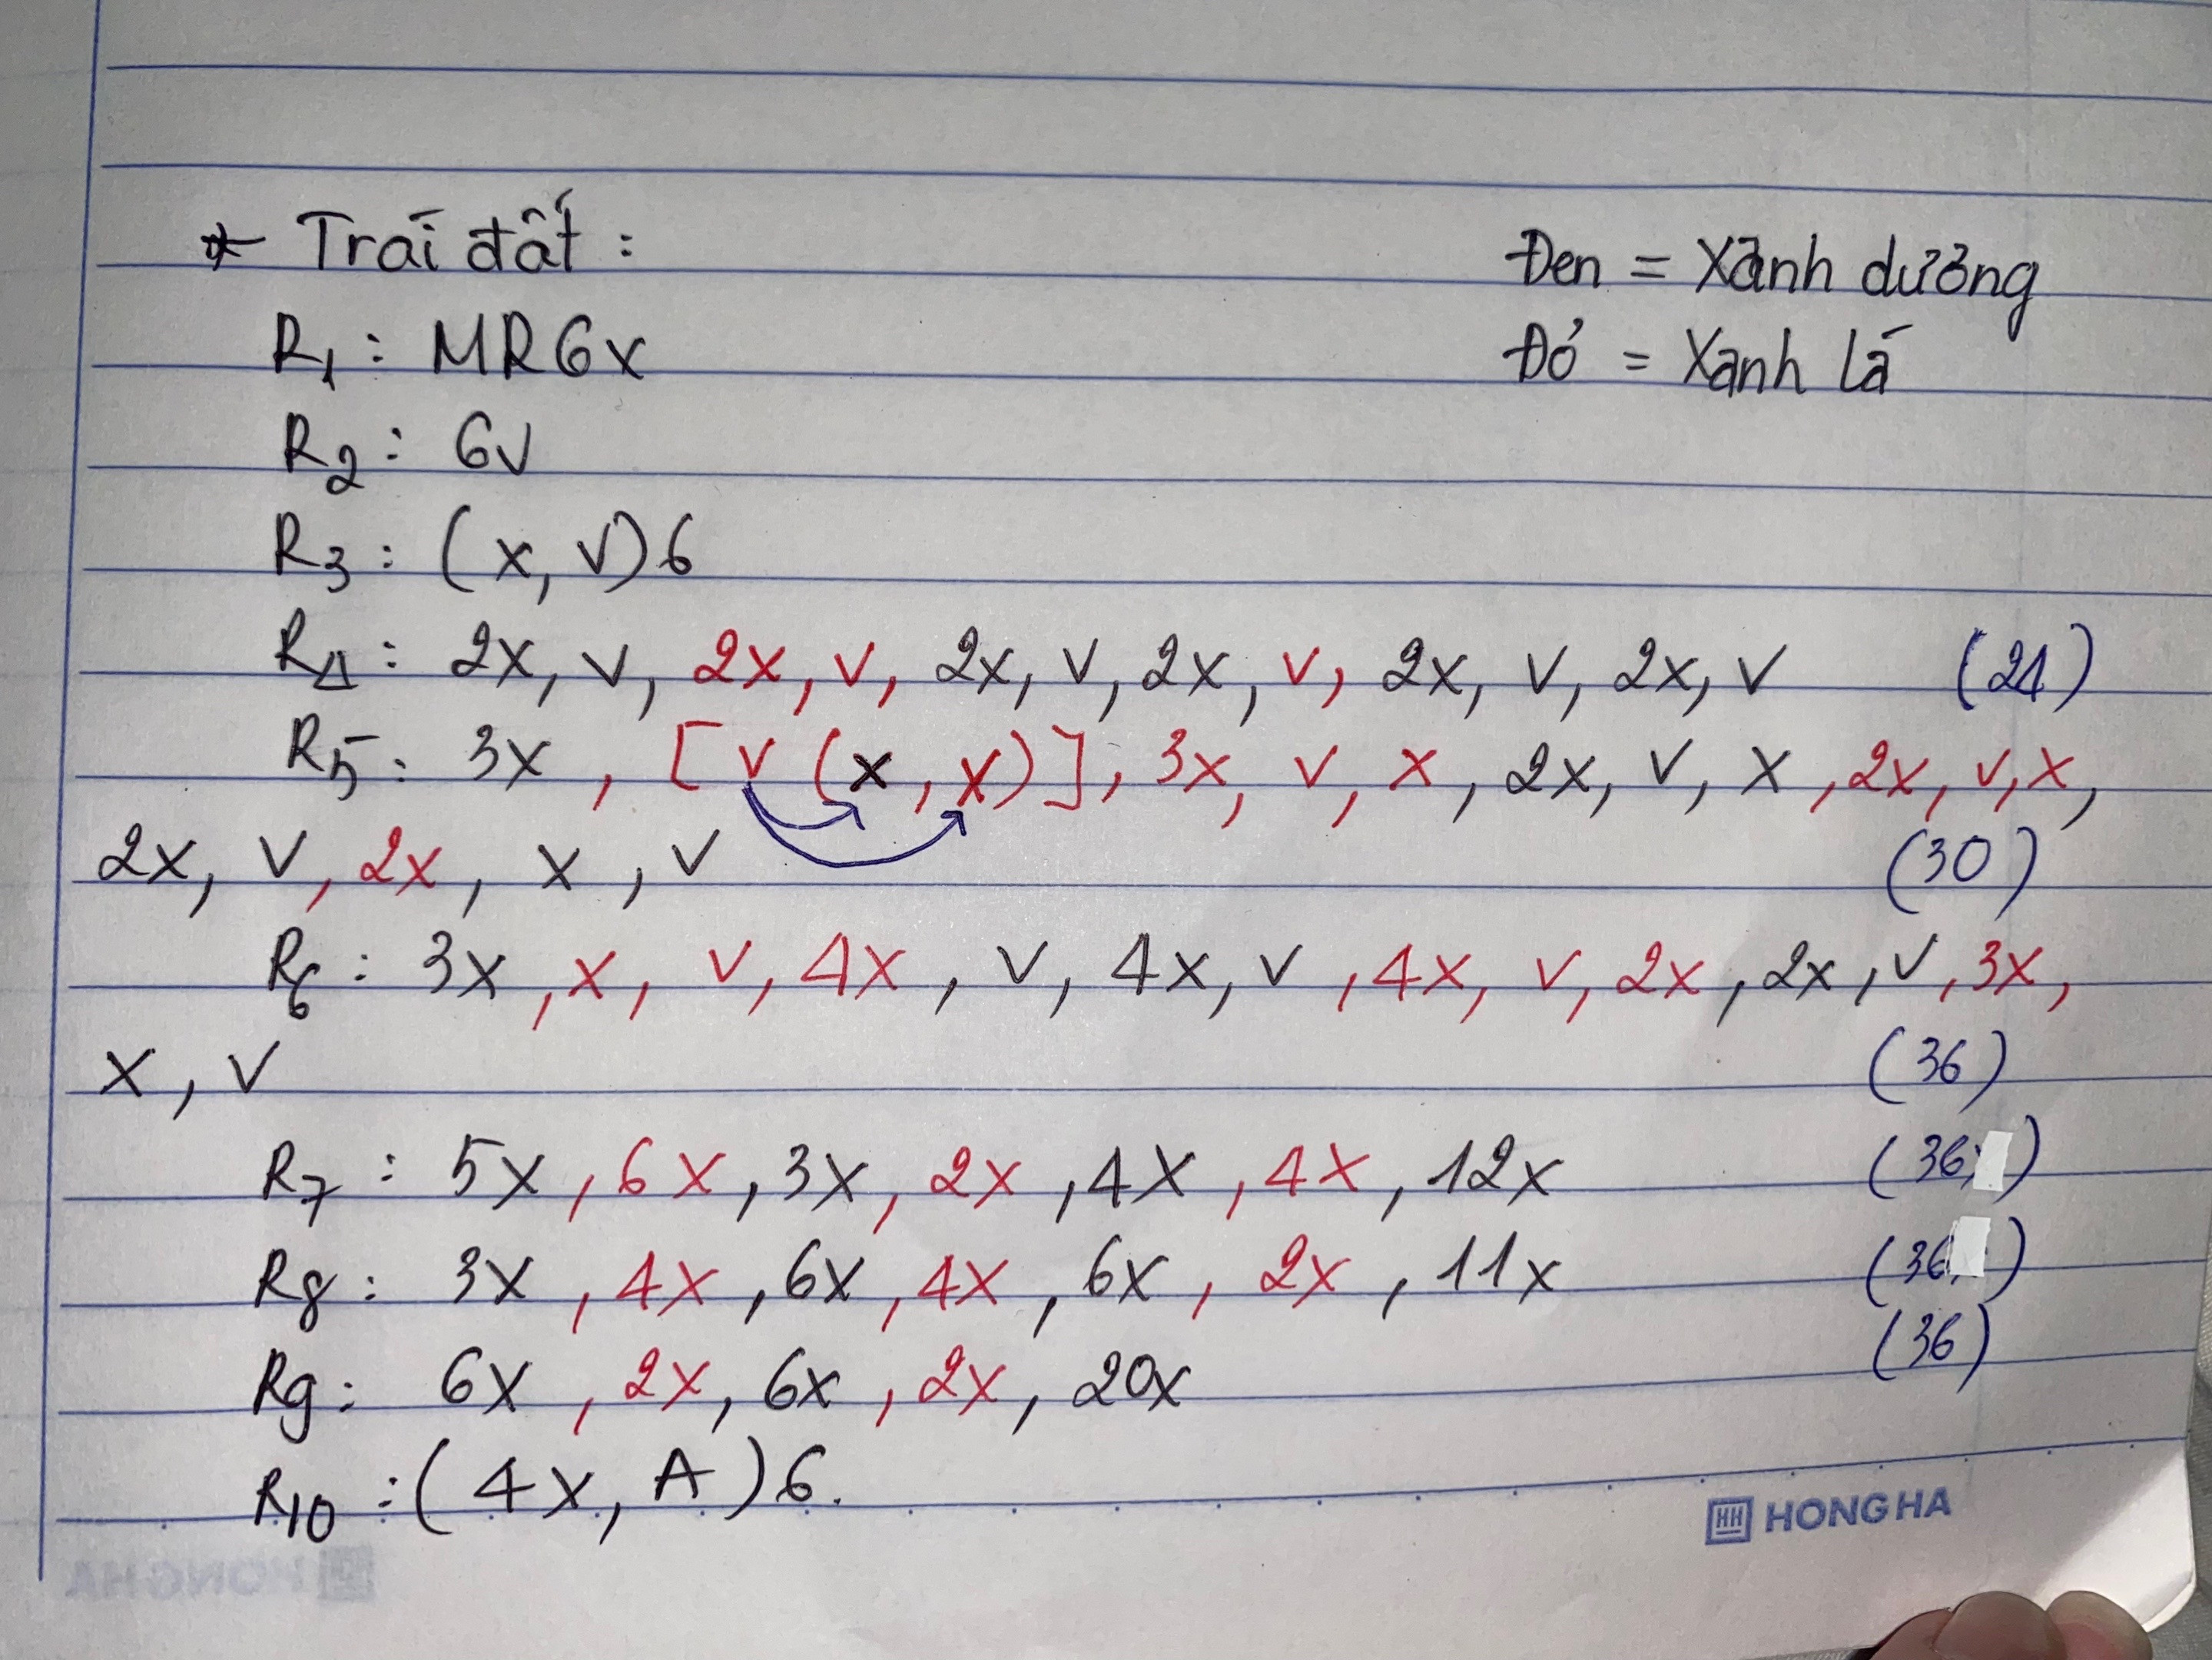 * Trái đất :
Đen = Xanh dương
Đỏ = Xanh lá
R1 : MR6x
R2 : 6V
R3 : (x, V)6
R4 : 2x, V, 2x, V, 2x, V, 2x, V, 2x, V, 2x, V (24)
R5 : 3x, [V (x, x)], 3x, V, x, 2x, V, x, 2x, V, x,
2x, V, 2x, x, V (30)
R6 : 3x, x, V, 4x, V, 4x, V, 4x, V, 2x, 2x, V, 3x,
x, V (36)
R7 : 5x, 6x, 3x, 2x, 4x, 4x, 12x (36)
R8 : 3x, 4x, 6x, 4x, 6x, 2x, 11x (36)
R9 : 6x, 2x, 6x, 2x, 20x (36)
R10 : (4x, A)6.
HH HONG HA
HONG HA